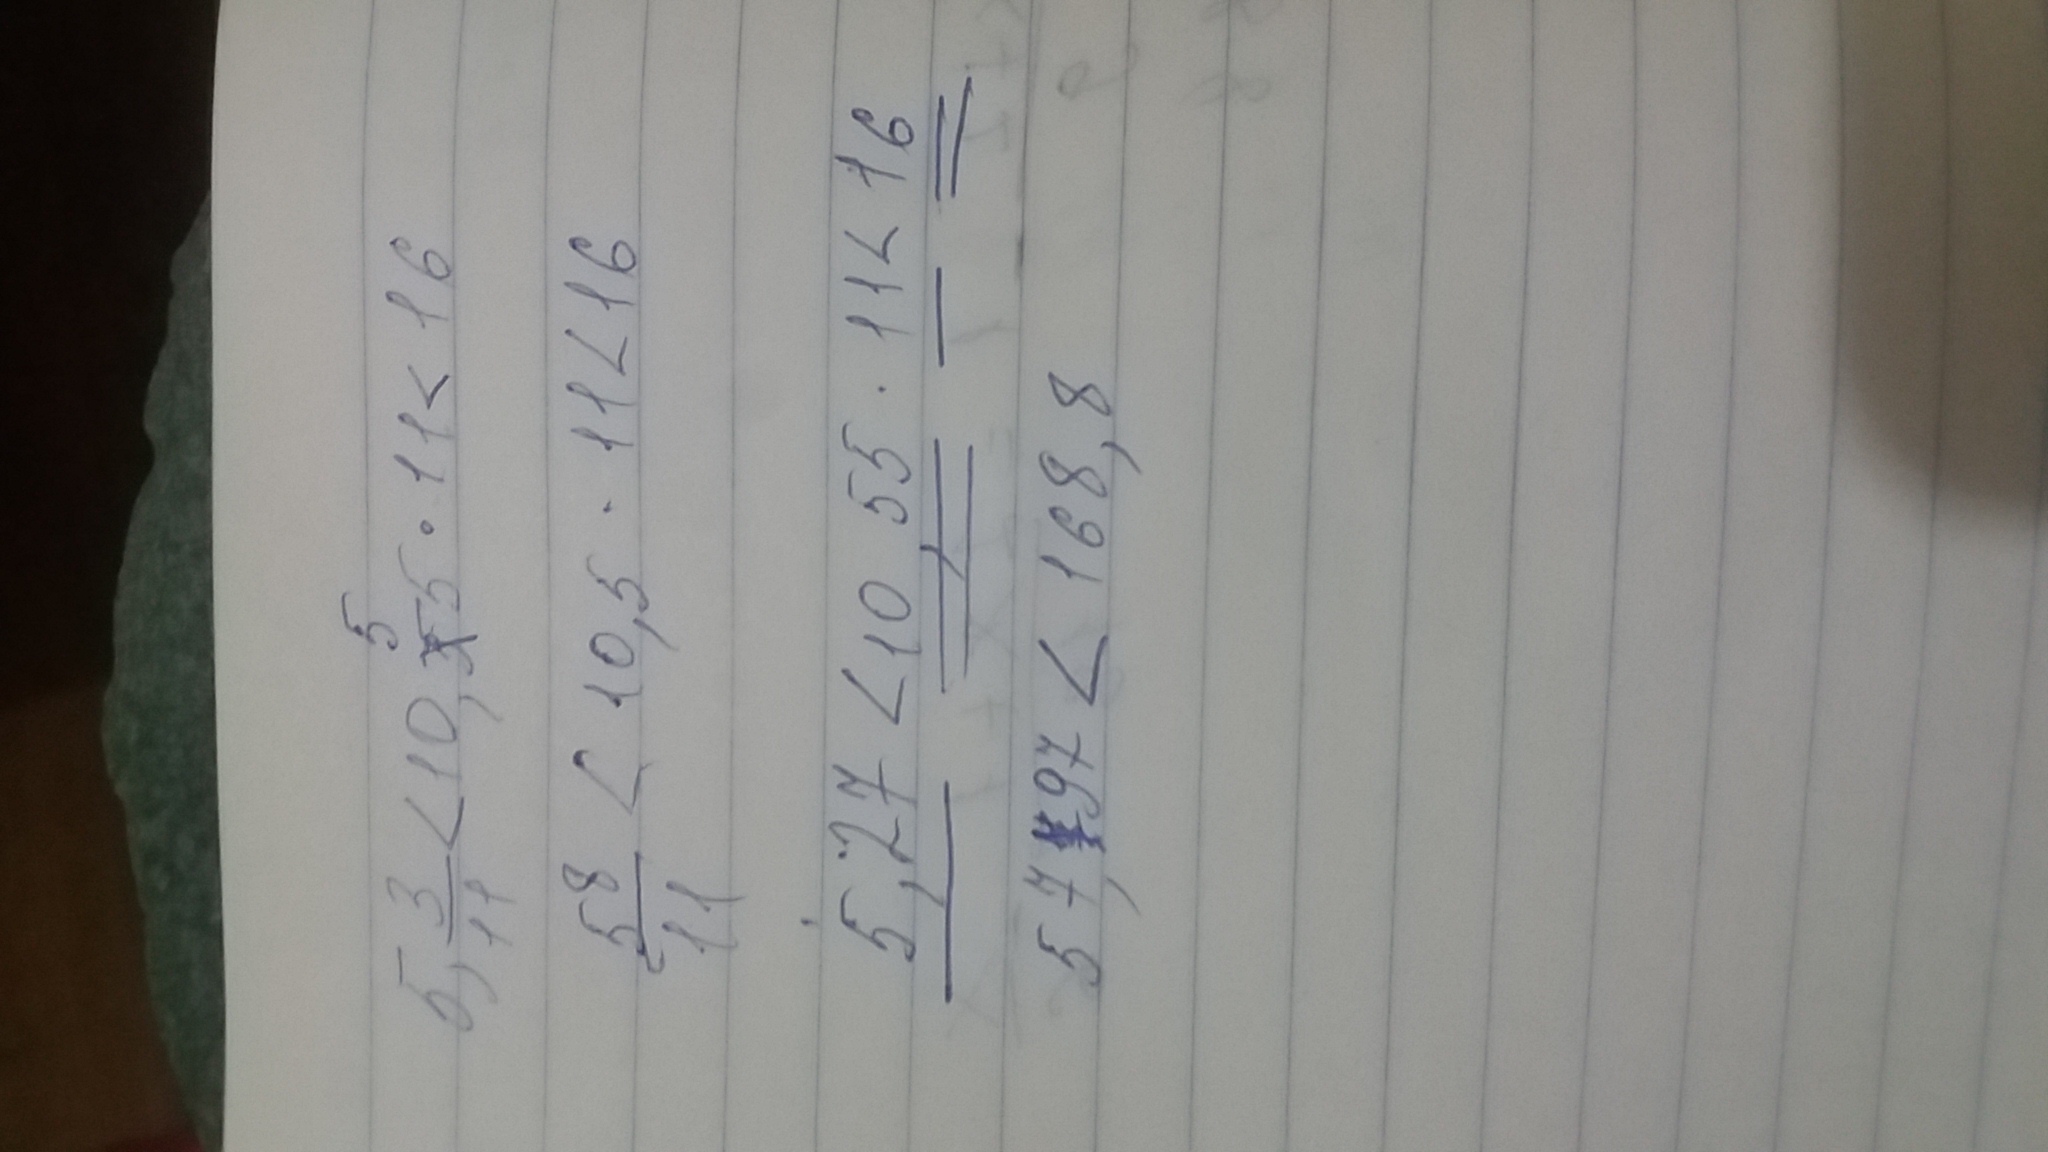 5
5,3/11 < 10,55 · 11 < 16
58/11 < 10,5 · 11 < 16
5,27 < 10,55 · 11 < 16
57,97 < 168,8